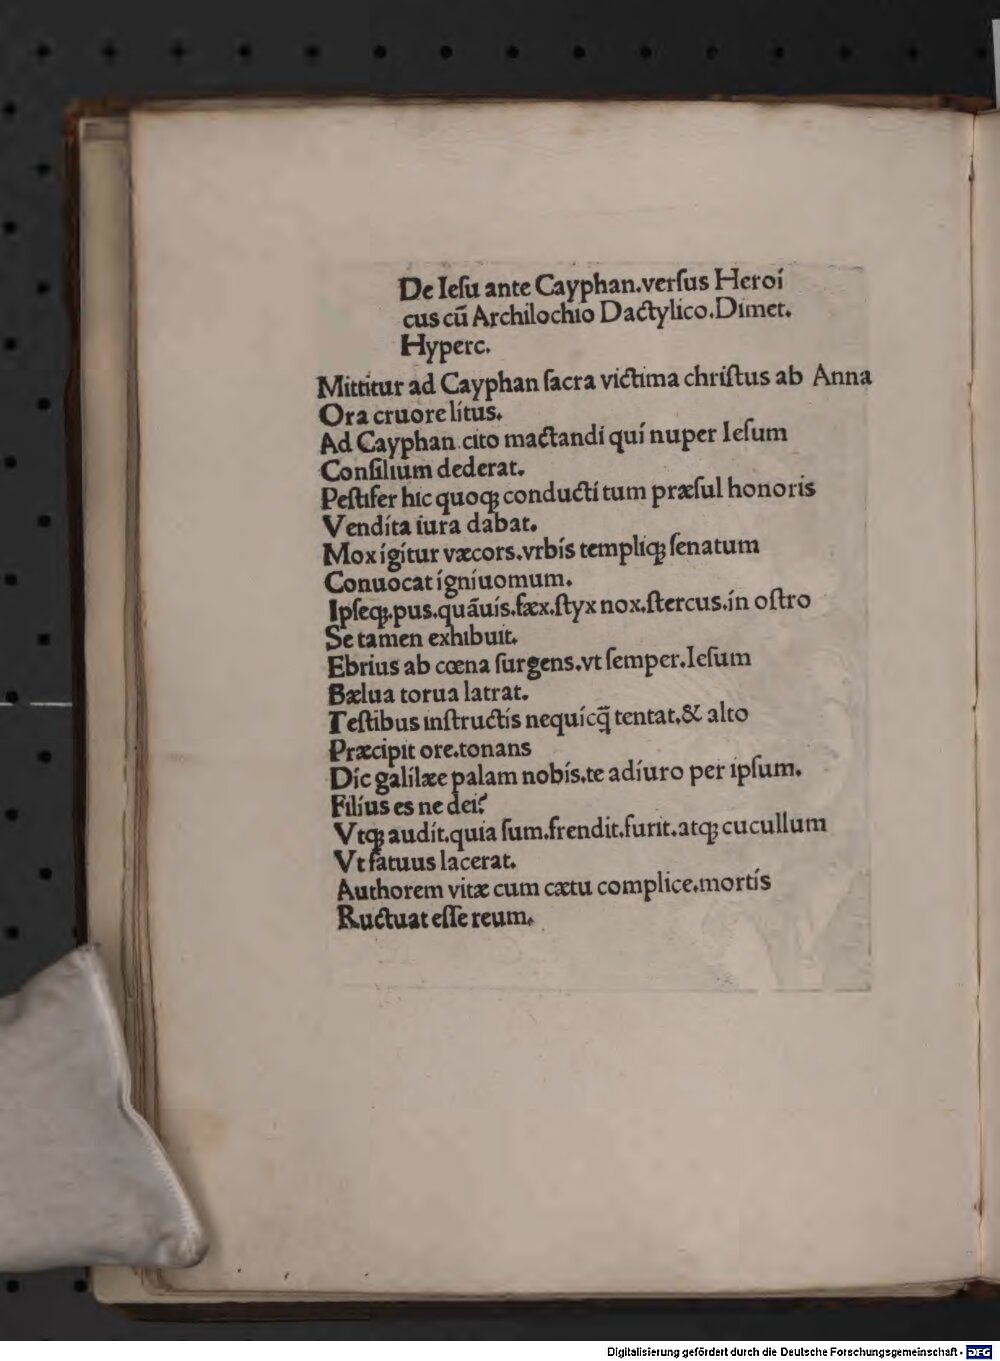 De Iesu ante Cayphan.versus Heroi
cus cū Archilochio Dactylico.Dimet.
Hyperc.
Mittitur ad Cayphan sacra victima christus ab Anna
Ora cruore litus.
Ad Cayphan cito mactandi qui nuper Iesum
Consilium dederat.
Pestifer hic quoqꝫ conducti tum præsul honoris
Vendita iura dabat.
Mox igitur væcors.vrbis templiqꝫ senatum
Conuocat igniuomum.
Ipseqꝫ.pus.quāuis.fæx.styx nox.stercus.in ostro
Se tamen exhibuit.
Ebrius ab cœna surgens.vt semper.Iesum
Bælua torua latrat.
Testibus instructis nequicq̄ tentat.& alto
Præcipit ore.tonans
Dic galilæe palam nobis.te adiuro per ipsum.
Filius es ne dei?
Vtqꝫ audit.quia sum.frendit.furit.atqꝫ cucullum
Vt fatuus lacerat.
Authorem vitæ cum cætu complice.mortis
Ructuat esse reum.
Digitalisierung gefördert durch die Deutsche Forschungsgemeinschaft - DFG